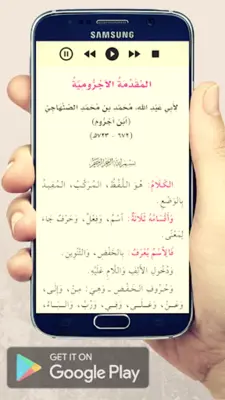 SAMSUNG
المُقَدِّمَةُ الآجُرُّومِيَّةُ
لأَبي عَبْدِ اللهِ، مُحَمَّدِ بنِ مُحَمَّدِ الصِّنْهَاجِيِّ
(ابْنِ آجُرُّوم)
(٦٧٢ - ٧٢٣هـ)
بسم الله الرحمن الرحيم
الكَلَامُ: هُوَ اللَّفْظُ، المُرَكَّبُ، المُفِيدُ
بِالوَضْعِ.
وَأَقْسَامُهُ ثَلَاثَةٌ: اسْمٌ، وَفِعْلٌ، وَحَرْفٌ جَاءَ
لِمَعْنًى.
فَالِاسْمُ يُعْرَفُ: بِالخَفْضِ، وَالتَّنْوِينِ،
وَدُخُولِ الأَلِفِ وَاللَّامِ عَلَيْهِ.
وَحُرُوفِ الخَفْضِ - وَهِيَ: مِنْ، وَإِلَى،
وَعَنْ، وَعَلَى، وَفِي، وَرُبَّ، وَالبَاءُ،
GET IT ON
Google Play